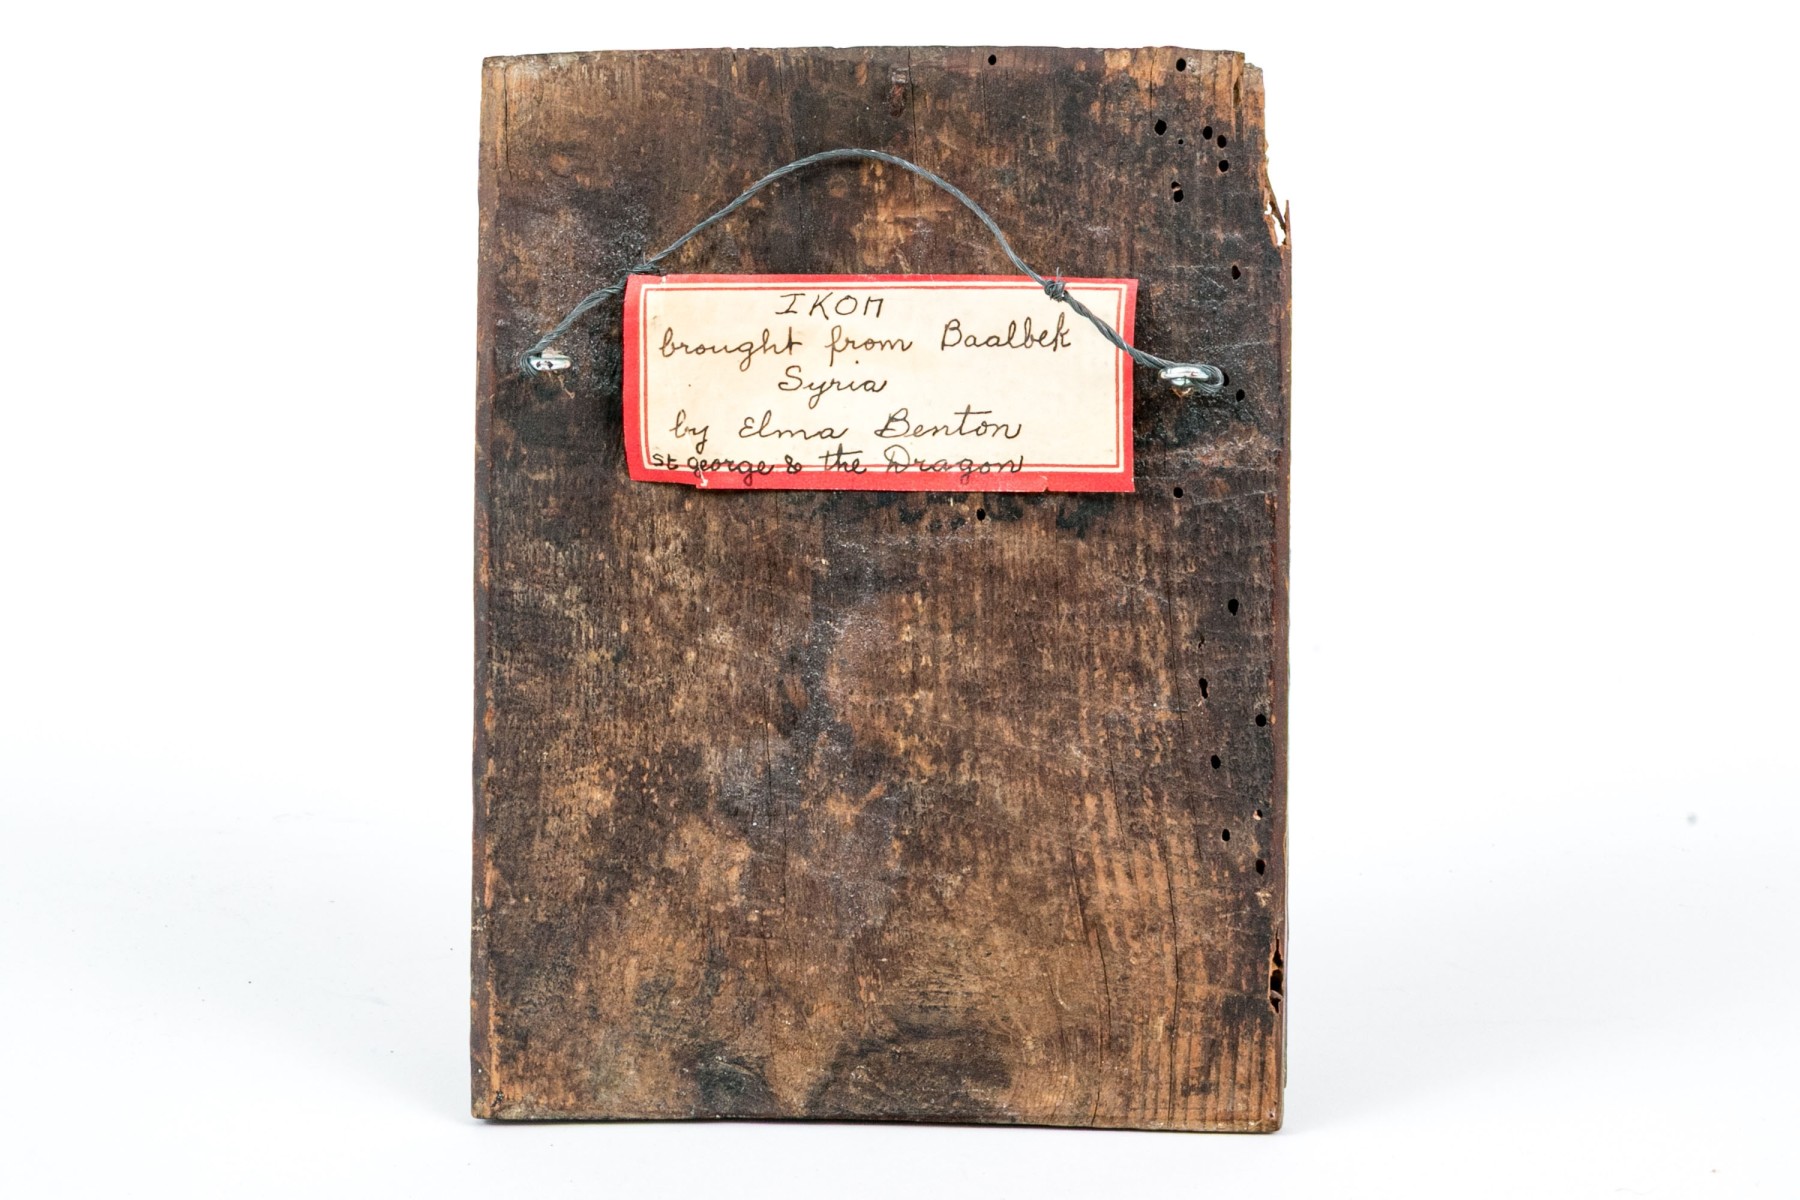 IKON
brought from Baalbek
Syria
by Elma Benton
St George & the Dragon